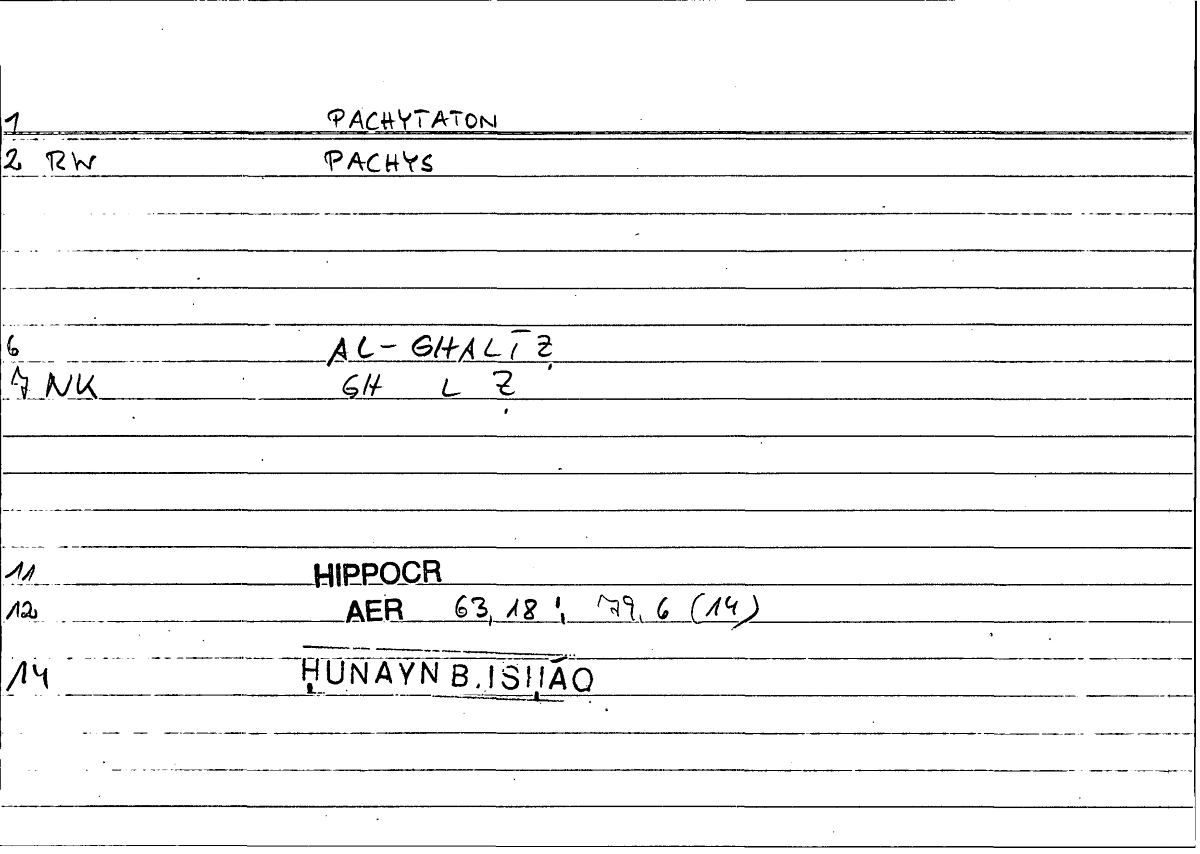 1 PACHYTATON
2 RW PACHYS
6 AL-GHALĪẒ
7 NK GH L Ẓ
11 HIPPOCR
12 AER 63,18 ; 79,6 (14)
14 ḤUNAYN B. ISḤĀQ